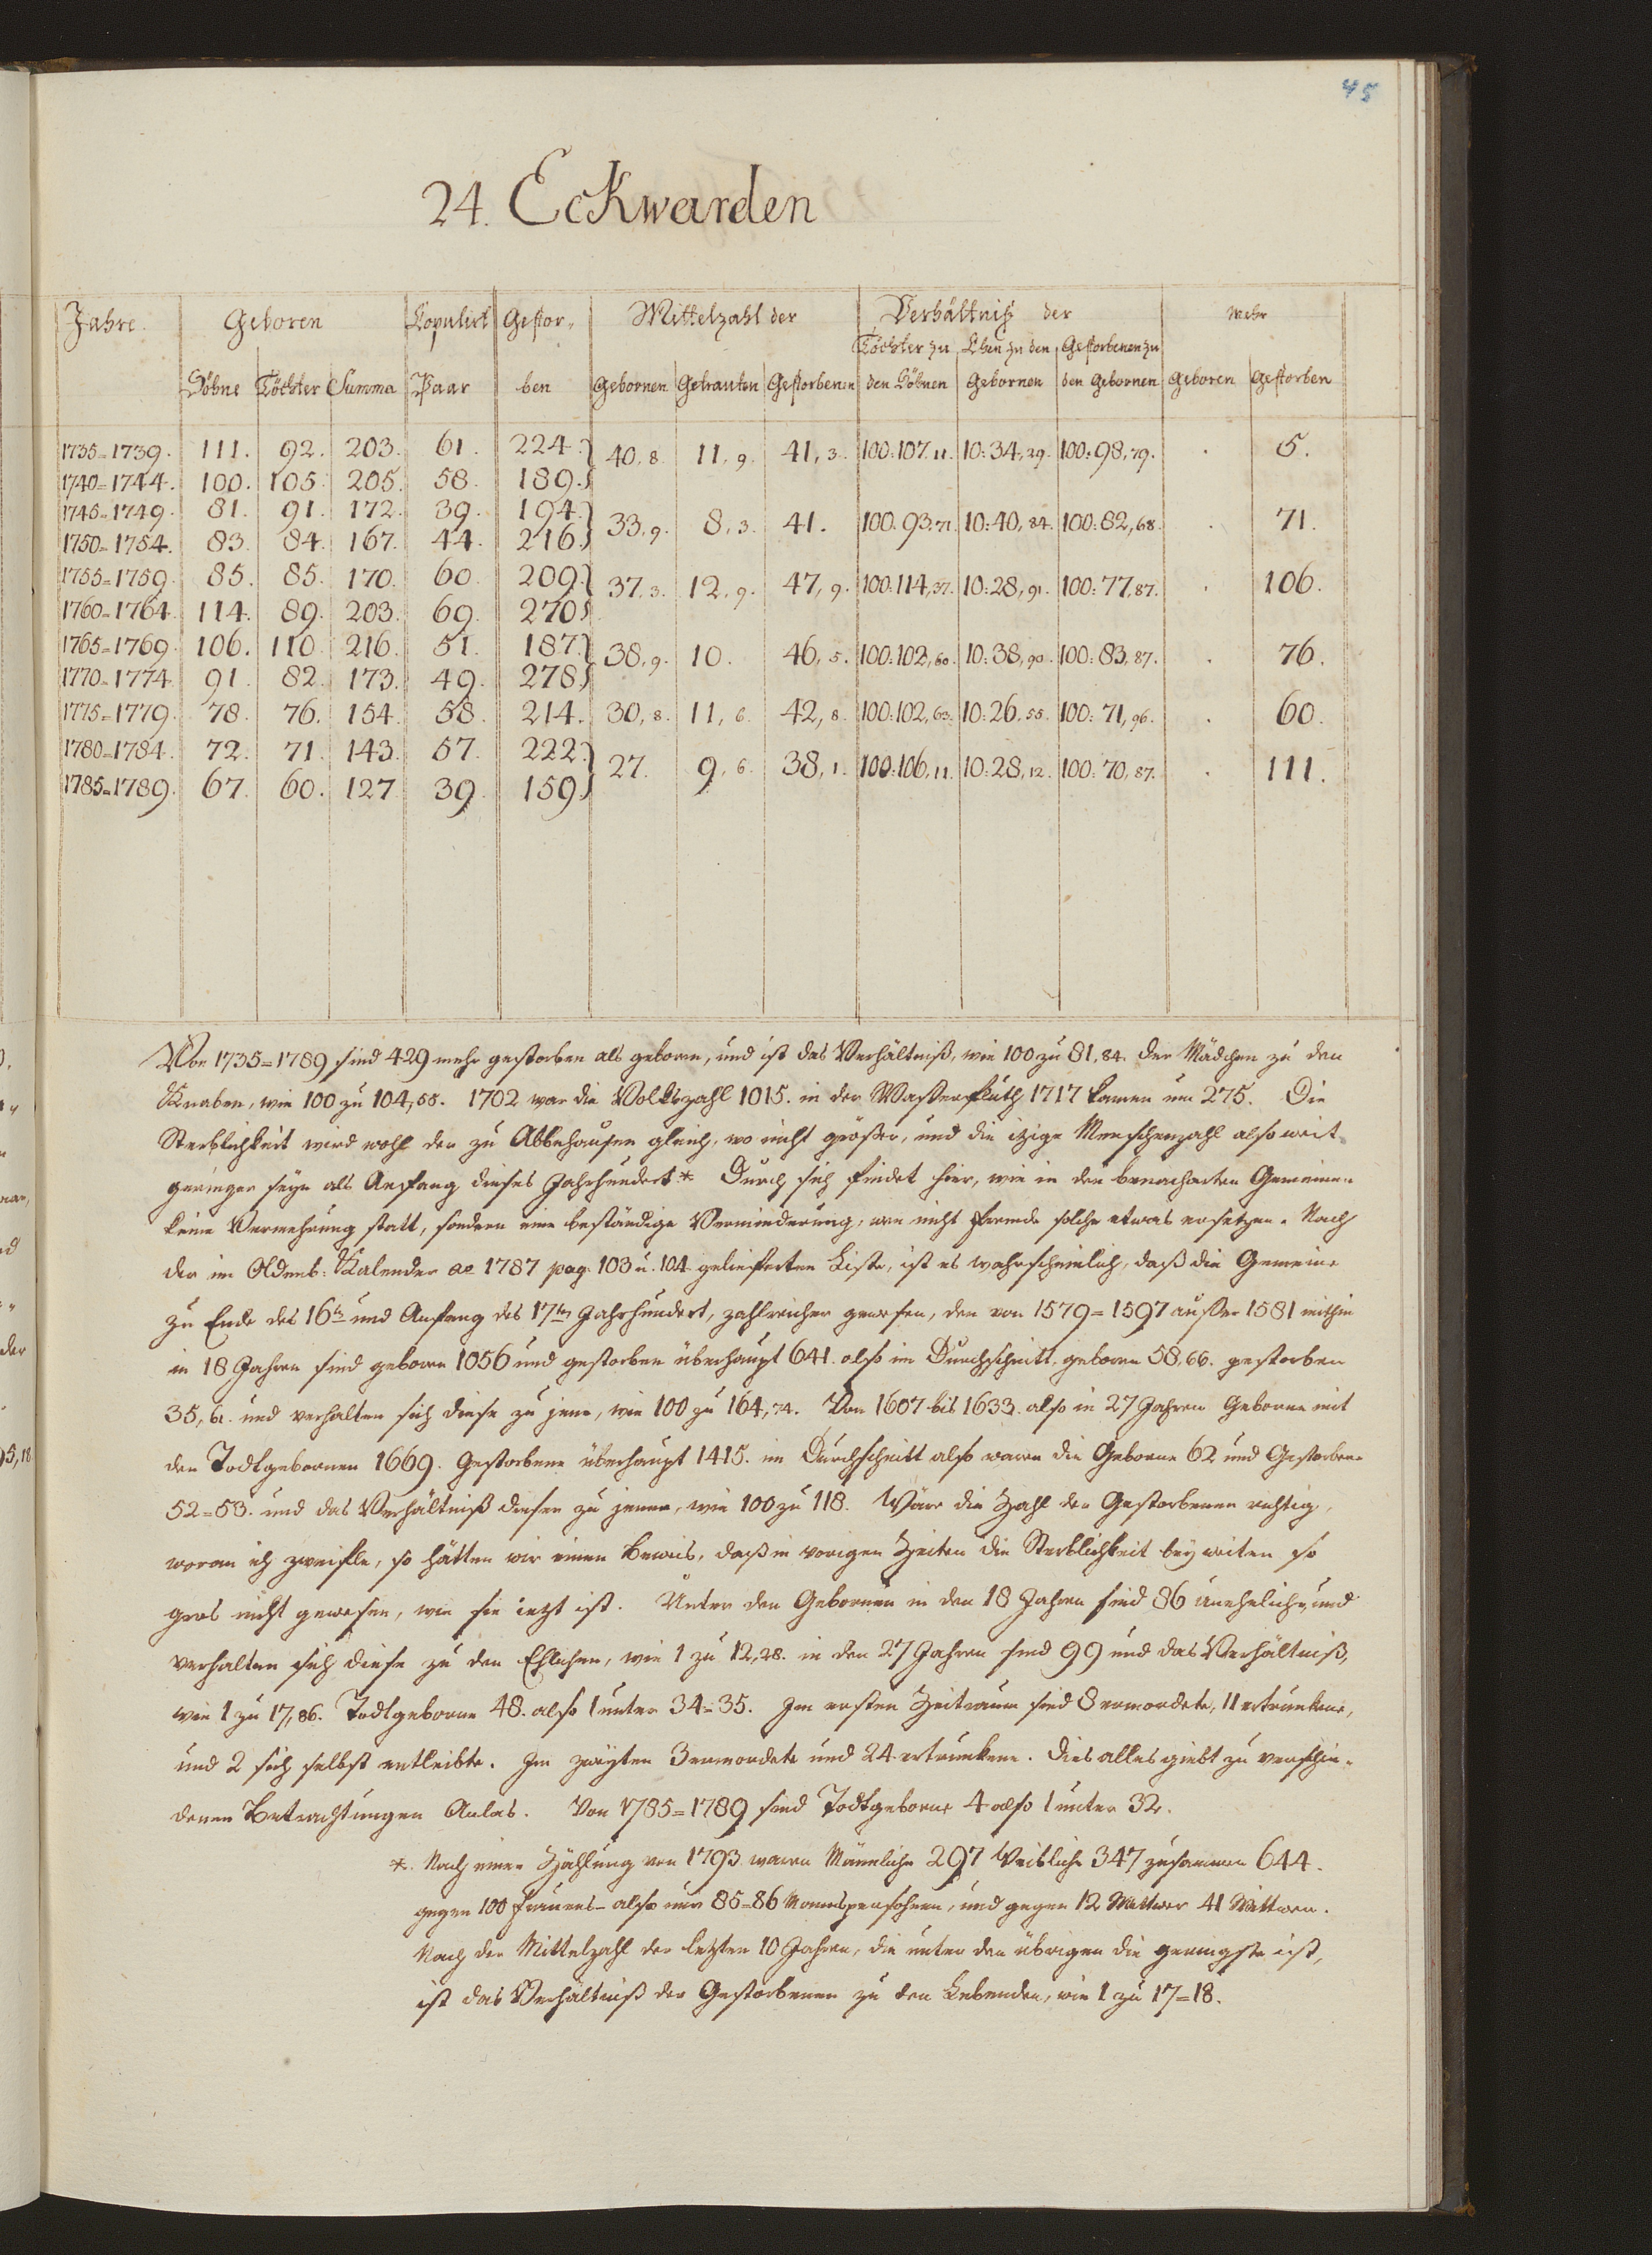 45
24. Eckwarden
Jahre. Geboren Kopulirt Gestor- Mittelzahl der Verhältniß der mehr
Töchter zu Ehen zu den Gestorbenen zu
Söhne Töchter Summa Paar ben Gebornen Getrauten Gestorbenen den Söhnen Gebornen den Gebornen Geboren Gestorben
1735=1739. 111. 92. 203. 61. 224. 40,8. 11,9. 41,3. 100:107,11. 10:34,29. 100:98,79. . 5.
1740=1744. 100. 105. 205. 58. 189.
1745=1749. 81. 91. 172. 39. 194. 33,9. 8,3. 41. 100:93,71. 10:40,84. 100:82,68. . 71.
1750=1754. 83. 84. 167. 44. 216.
1755=1759. 85. 85. 170. 60. 209. 37,3. 12,9. 47,9. 100:114,37. 10:28,91. 100:77,87. . 106.
1760=1764. 114. 89. 203. 69. 270.
1765=1769. 106. 110. 216. 51. 187. 38,9. 10. 46,5. 100:102,60. 10:38,90. 100:83,87. . 76.
1770=1774. 91. 82. 173. 49. 278.
1775=1779. 78. 76. 154. 58. 214. 30,8. 11,6. 42,8. 100:102,63. 10:26,55. 100:71,96. . 60.
1780=1784. 72. 71. 143. 57. 222. 27. 9,6. 38,1. 100:106,11. 10:28,12. 100:70,87. . 111.
1785=1789. 67. 60. 127. 39. 159.
Von 1735=1789 sind 429 mehr gestorben als geboren, und ist das Verhältniß, wie 100 zu 81,84. der Mädchen zu den
Knaben, wie 100 zu 104,55. 1702 war die Volkszahl 1015. in der Wasserfluth 1717 kamen um 275. Die
Sterblichkeit wird wohl der zu Abbehausen gleich, wo nicht größer, und die itzige Menschenzahl also weit
geringer seyn als Anfang dieses Jahrhundert* Durch sich findet hier, wie in den benacharten Gemeinen
keine Vermehrung statt, sondern eine beständige Verminderung, wen nicht fremde solche etwas ersetzen. Nach
der im Oldenb: Kalender ae 1787 pag. 103 u. 104 gelieferten Liste, ist es wahrscheinlich, daß die Gemeine
zu Ende des 16ten und Anfang des 17ten Jahrhundert, zahlreicher gewesen, den von 1579=1597 außer 1581 mithin
in 18 Jahren sind geboren 1056 und gestorben überhaupt 641. also im Durchschnitt, geboren 58,66. gestorben
35,61. und verhalten sich diese zu jene, wie 100 zu 164,74. Von 1607 bis 1633. also in 27 Jahren Geborne mit
den Todtgebornen 1669. Gestorbene überhaupt 1415. im Durchschnitt also waren die Geborne 62 und Gestorbene
52=53. und das Verhältniß dieser zu jenen, wie 100 zu 118. Wäre die Zahl der Gestorbenen richtig,
woran ich zweifle, so hätten wir einen Beweis, daß in vorigen Zeiten die Sterblichkeit bey weiten so
gros nicht gewesen, wie sie ietzt ist. Unter den Gebornen in den 18 Jahren sind 86 unehelich, und
verhalten sich diese zu den Ehlichen, wie 1 zu 12,28. in den 27 Jahren sind 99 und das Verhältniß,
wie 1 zu 17,86. Todtgeborne 48. also 1 unter 34=35. Im ersten Zeitraum sind 8 ermordete, 11 ertrunkene,
und 2 sich selbst entleibte. Im zweyten 3 ermordete und 24 ertrunkene. Dies alles giebt zu verschie-
denen Betrachtungen Anlas. Von 1785=1789 sind Todtgeborne 4 also 1 unter 32.
*. Nach einer Zählung von 1793 waren Männliche 297 Weibliche 347 zusammen 644.
gegen 100 Frauens- also nur 85=86 Mannspersohnen, und gegen 12 Wittwer 41 Wittwen.
Nach der Mittelzahl der letzten 10 Jahren, die unter den übrigen die geringste ist,
ist das Verhältniß der Gestorbenen zu den Lebenden, wie 1 zu 17=18.